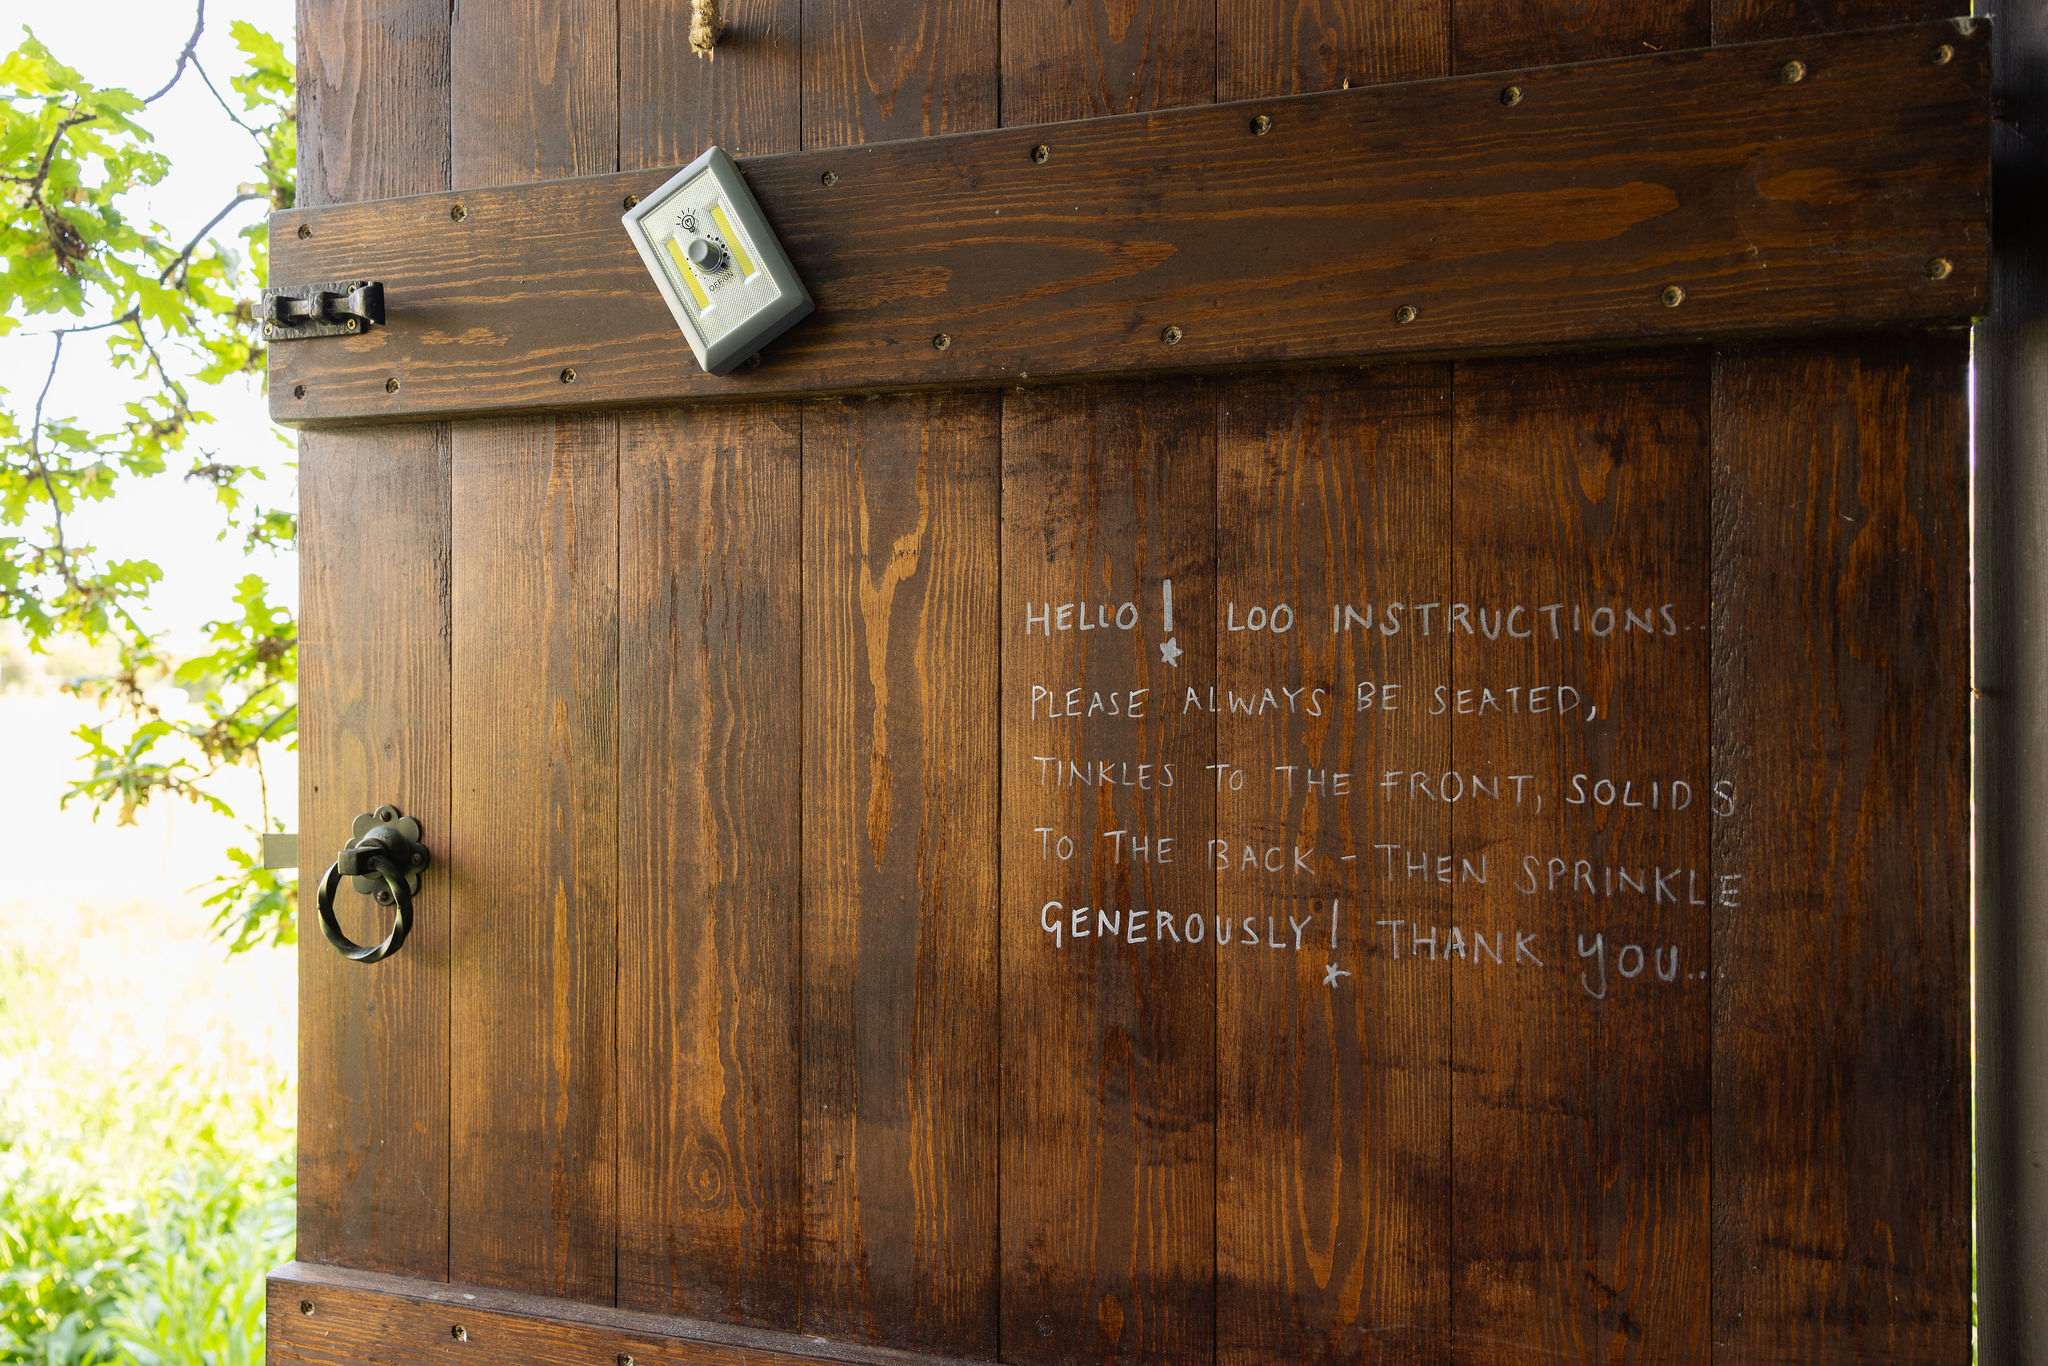 HELLO! LOO INSTRUCTIONS..
PLEASE ALWAYS BE SEATED,
TINKLES TO THE FRONT, SOLIDS
TO THE BACK - THEN SPRINKLE
GENEROUSLY! THANK YOU...